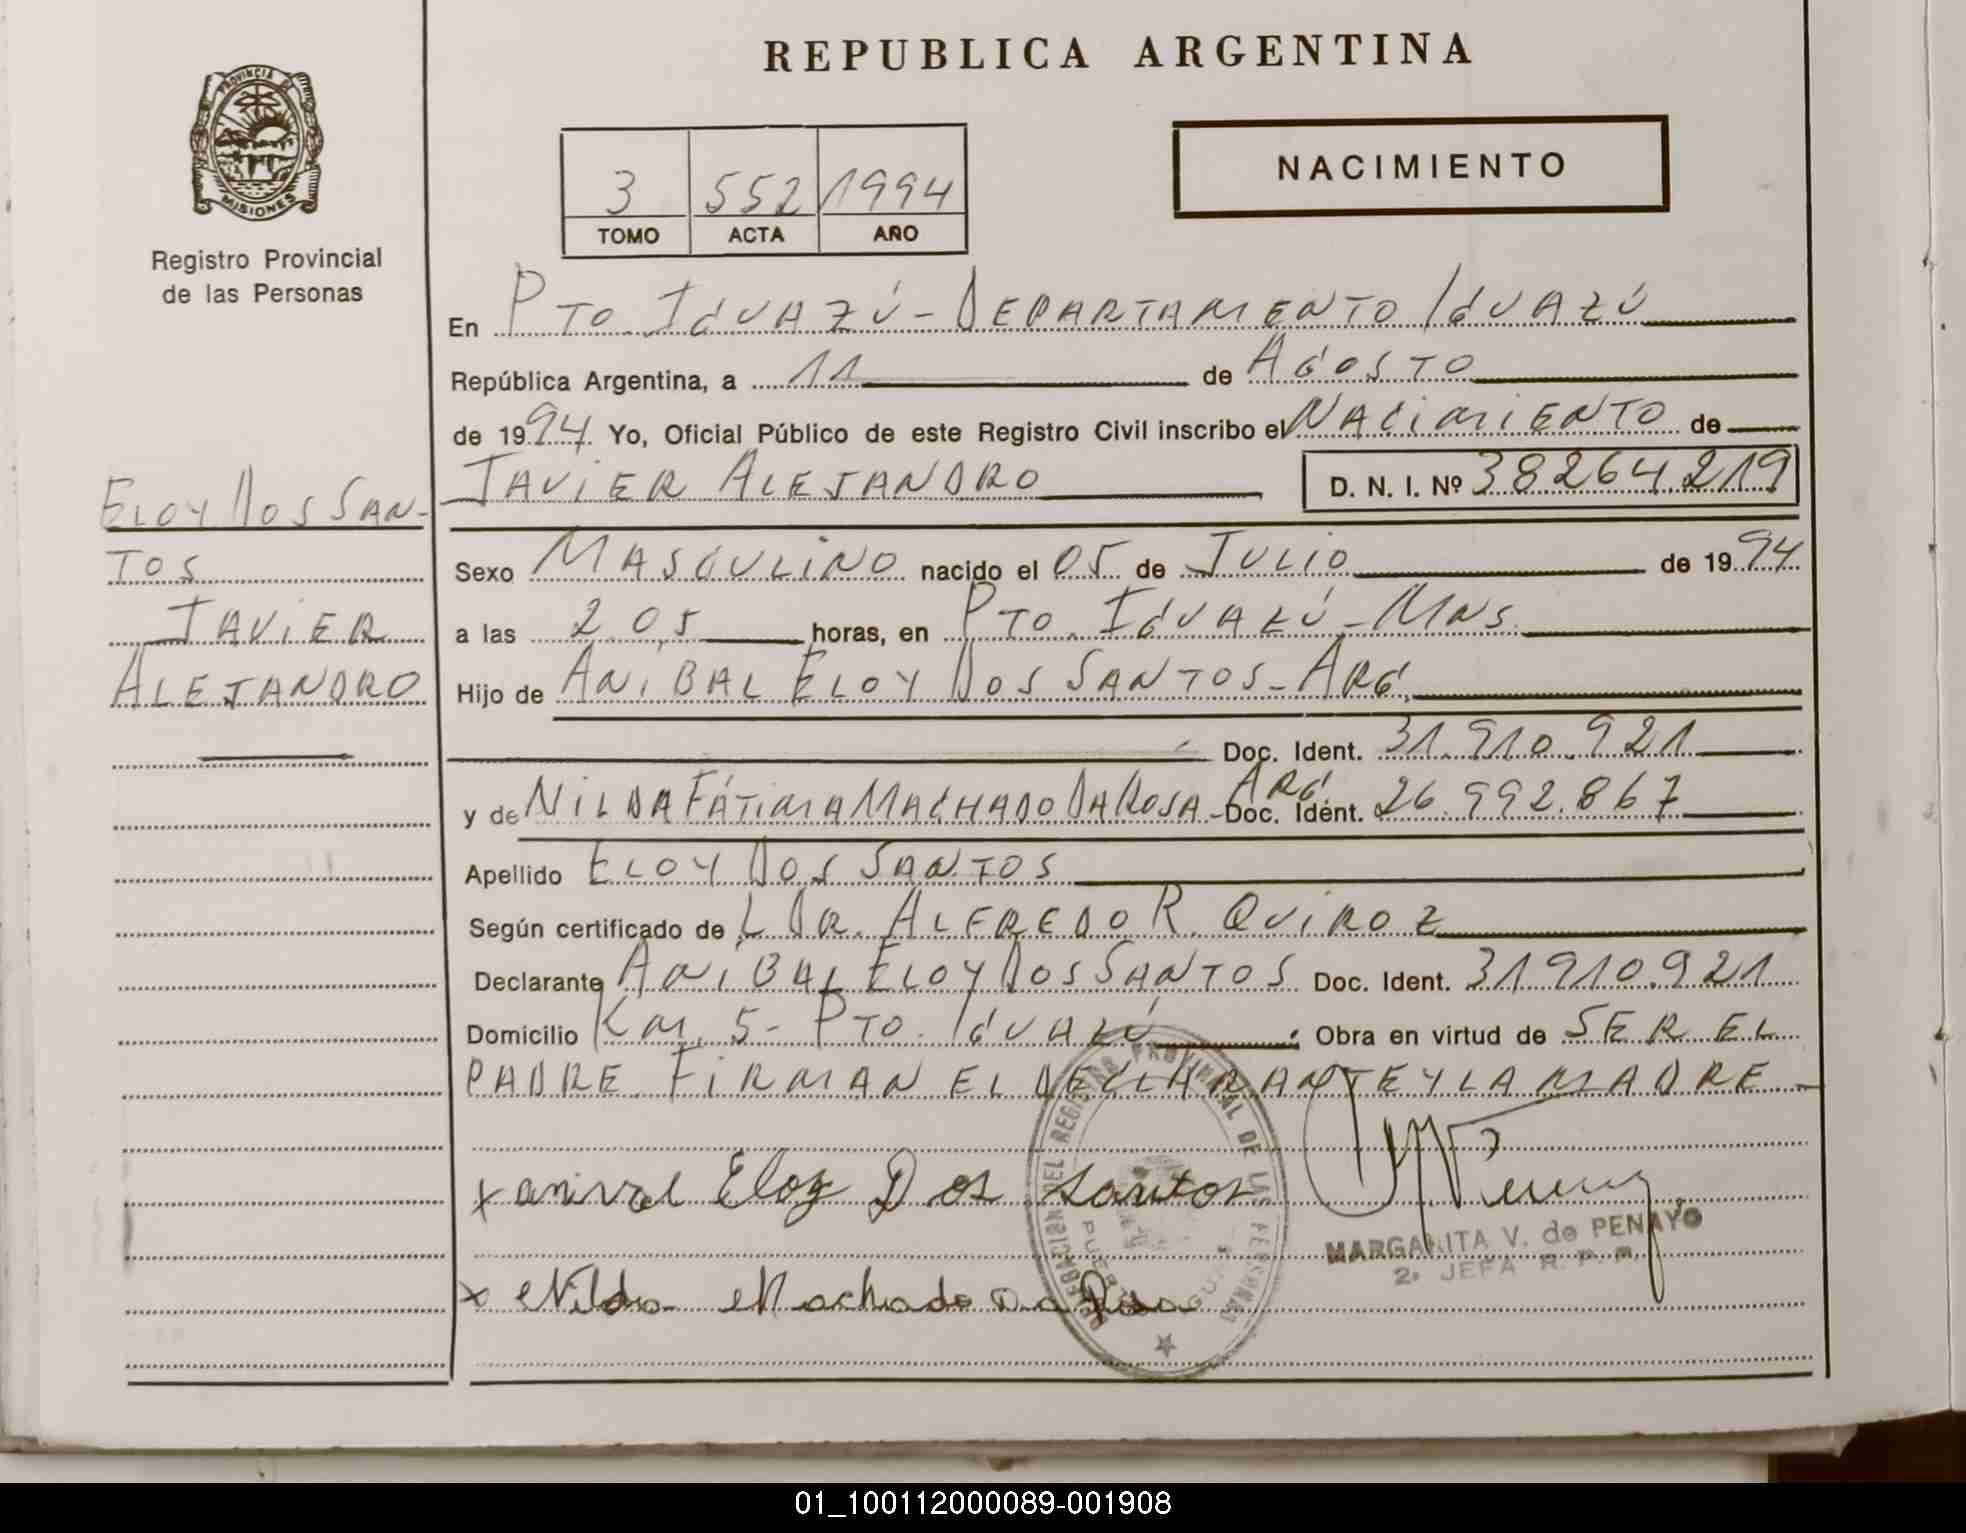 REPUBLICA ARGENTINA
PROVINCIA DE
MISIONES
Registro Provincial
de las Personas
3 552 1994
TOMO ACTA AÑO
NACIMIENTO
En PTO. IGUAZÚ - DEPARTAMENTO IGUAZÚ
República Argentina, a 11 de AGOSTO
de 1994 Yo, Oficial Público de este Registro Civil inscribo el NACIMIENTO de
JAVIER ALEJANDRO D. N. I. Nº 38264219
ELOY DOS SAN-
TOS
JAVIER
ALEJANDRO
Sexo MASCULINO nacido el 05 de JULIO de 1994
a las 2,05 horas, en PTO. IGUAZÚ - MNS.
Hijo de ANIBAL ELOY DOS SANTOS - ARG.
Doc. Ident. 31.910.921
y de NILDA FÁTIMA MACHADO DA ROSA - ARG. Doc. Ident. 26.992.867
Apellido ELOY DOS SANTOS
Según certificado de L DR. ALFREDO R. QUIROZ
Declarante ANIBAL ELOY DOS SANTOS Doc. Ident. 31910.921
Domicilio KM. 5 - PTO. IGUAZÚ Obra en virtud de SER EL
PADRE. FIRMAN EL DECLARANTE Y LA MADRE -
x anival Eloy Dos santos
MARGARITA V. de PENAYO
2º JEFA R. P. P.
x Nilda Machado Da Rosa
DELEGACION DEL REGISTRO PROVINCIAL DE LAS PERSONAS
01_100112000089-001908